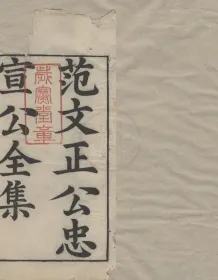 范文正公忠
宣公全集
歲寒堂章